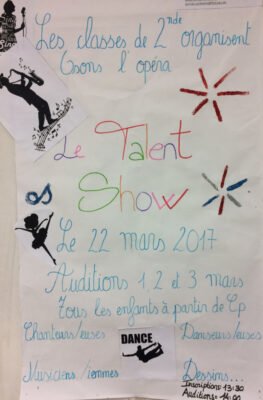 Les classes de 2nde organisent
Osons l'opéra
Le Talent
Show
Le 22 mars 2017
Auditions 1, 2 et 3 mars
Tous les enfants à partir de Cp
Chanteurs/euses
DANCE
Danseurs/euses
Musiciens/iennes
Dessins...
Inscriptions 13:30
Auditions 14:00